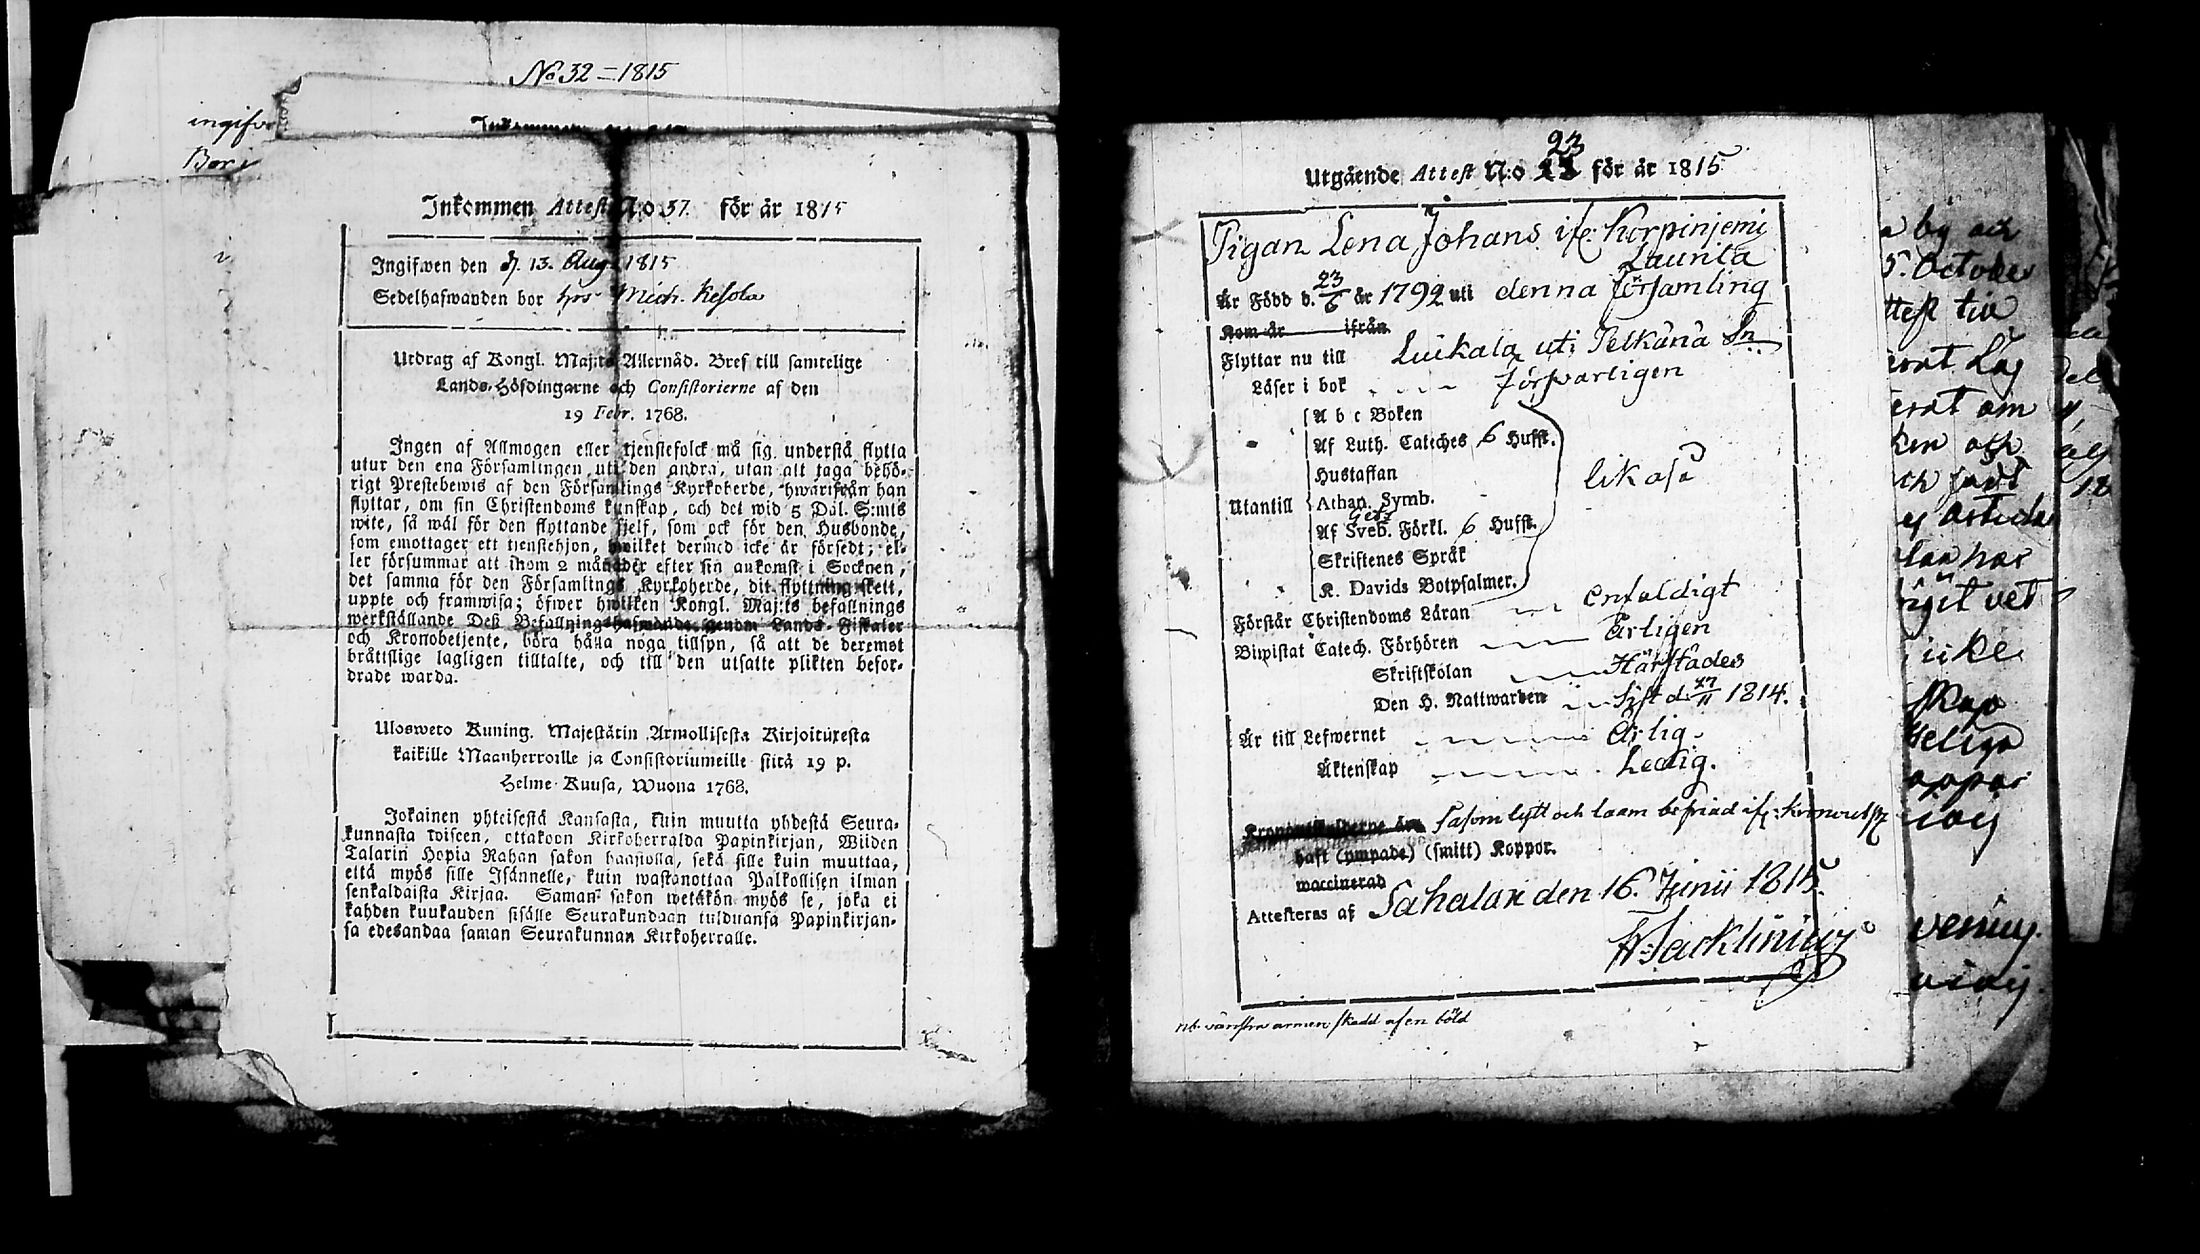 No 32 = 1815
ingifv
Bor
Inkommen Attest N:o 37. för år 1815
Ingifwen den d. 13. Aug 1815
Sedelhafwanden bor hos Mich. Kesola
Utdrag af Kongl. Maj:ts Allernåd. Bref till samtelige
Lands-Höfdingarne och Consistorierne af den
19 Febr. 1768.
Ingen af Allmogen eller tjenstefolck må sig understå flytta
utur den ena Församlingen uti den andra, utan att taga behö-
rigt Prestebewis af den Församlings Kyrkoherde, hwarifrån han
flyttar, om sin Christendoms kunskap, och det wid 5 Dal. S:mts
wite, så wäl för den flyttande sjelf, som ock för den Husbonde,
som emottager ett tjenstehjon, hwilket dermed icke är försedt; el-
ler försummar att inom 2 månader efter sin ankomst i Socknen,
det samma för den Församlings Kyrkoherde, dit flyttning skett,
uppte och framwisa; öfwer hwilken Kongl. Maj:ts befallnings
werkställande Deß Befallningshafwande genom Lands-Fiskaler
och Kronobetjente, böra hålla noga tillsyn, så att de deremot
bråttslige lagligen tilltalte, och till den utsatte plikten befor-
drade warda.
Uloswero Kuning. Majestätin Armollisesta Kirjoituxesta
kaikille Maanherroille ja Consistoriumeille siitä 19 p.
Helme-Kuusa, Wuona 1768.
Jokainen yhteisestä Kansasta, kuin muutta yhdestä Seura-
kunnasta toiseen, ottakoon Kirkoherralda Papinkirjan, Wiiden
Talarin Hopia Rahan sakon haastolla, sekä sille kuin muuttaa,
että myös sille Isännelle, kuin wastanottaa Palkollisen ilman
senkaldaista Kirjaa. Saman sakon wetäkön myös se, joka ei
kahden kuukauden sisälle Seurakundaan tulduansa Papinkirjan-
sa edesandaa saman Seurakunnan Kirkoherralle.
23
Utgående Attest N:o 22 för år 1815
Pigan Lena Johans ifr. Korpinjemi
Laurila
Är Född d. 23/6 år 1792 uti denna församling
Kom år ifrån
Flyttar nu till Luikala uti Pelkäna Sn
Läser i bok försvarligen
A b c Boken
Af Luth. Cateches 6 Hufst.
Hustaflan
likaså
Utantill Athan. Symb.
Af Sveb. Förkl. 6 Hufst.
Skriftenes Språk
K. Davids Botpsalmer.
Förstår Christendoms Läran enfaldigt
Biwistat Catech. Förhören Ärligen
Skriftskolan Härstädes
Den H. Nattwarden sist d. 27/11 1814.
Är till Lefwernet Ärlig.
Äktenskap Ledig.
Kronoutskylderne äro Såsom lytt och laam befriad ifr: Kronoutsk
haft (ympade) (smitt) Koppor.
waccinerad
Attesteras af Sahalax den 16. Junii 1815.
nb. vänstra armen skadd af en böld
a by och
5. October
ttest til
erat om
ken och
riget vet
icke
skap